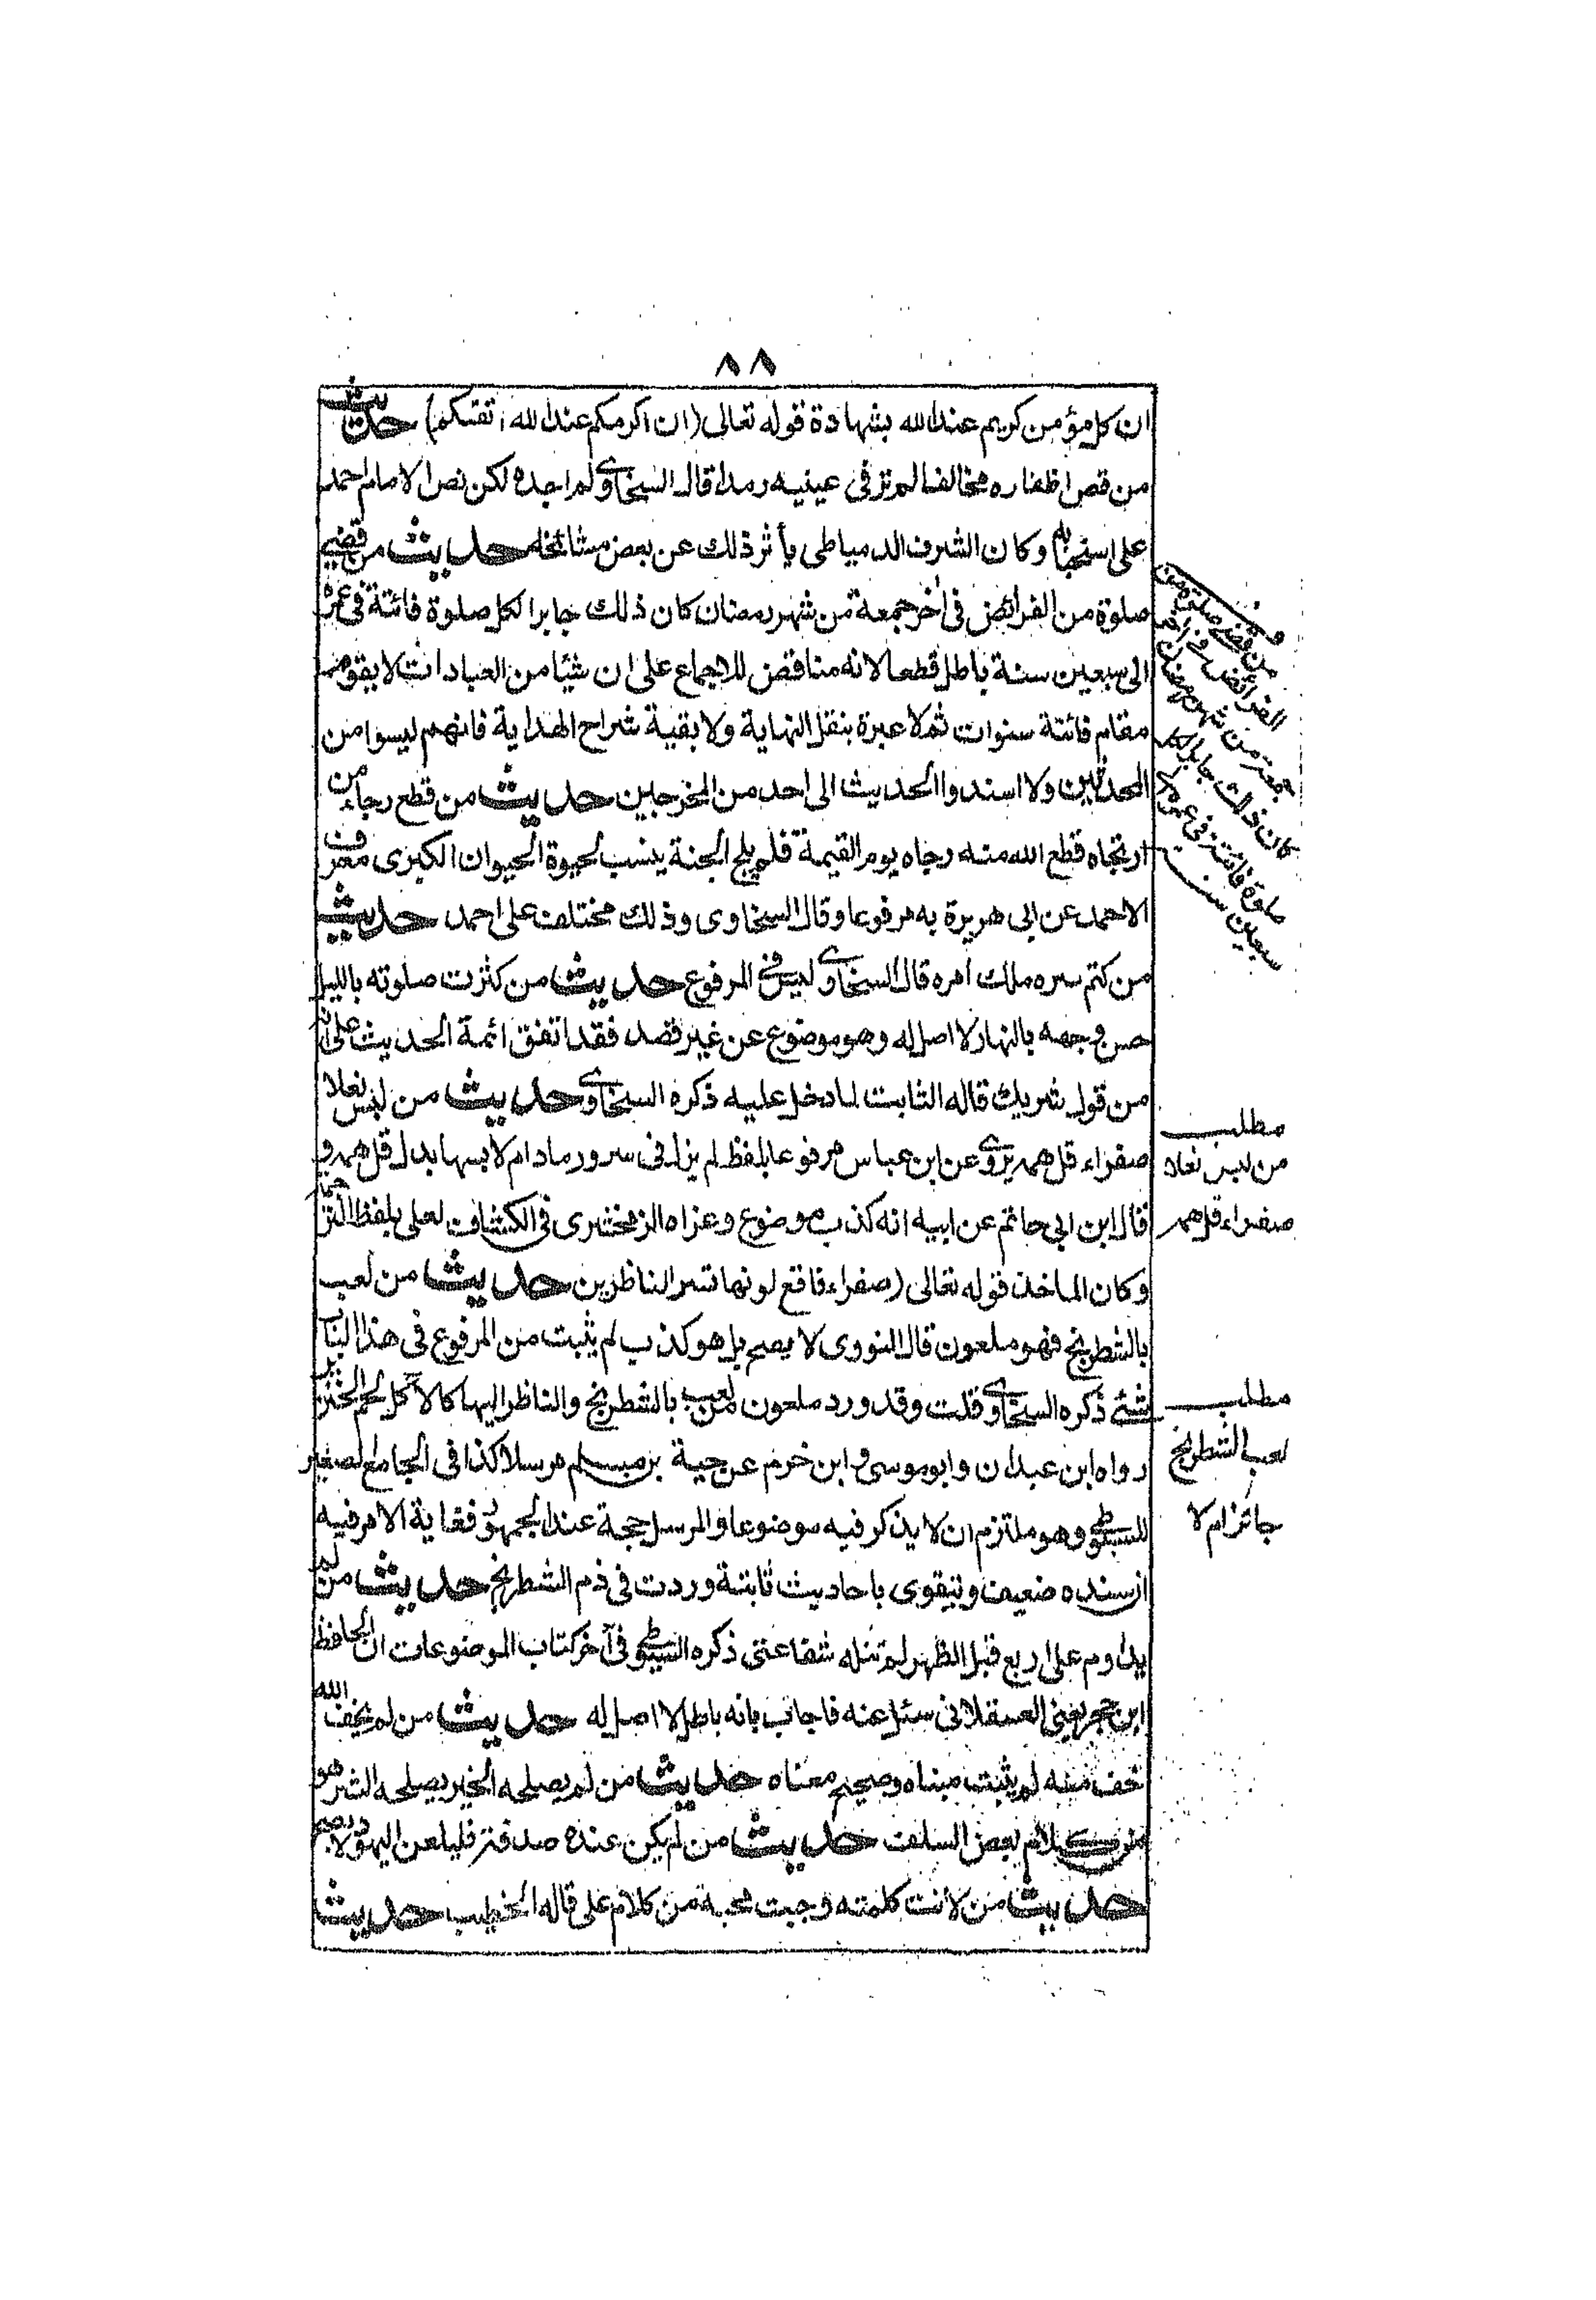 ٨٨
ان كل مؤمن كريم عند الله بشهادة قوله تعالى (ان اكرمكم عند الله اتقىكم) حديث
من قص اظفاره مخالفا لم تر فى عينيه رمدا قال السخاوى لم اجده لكن نص الامام احمد
على استحبابه وكان الشرف الدمياطى يأثر ذلك عن بعض مشائخه حديث من قضى
صلوة من الفرائض فى اخر جمعة من شهر رمضان كان ذلك جابرا لكل صلوة فائتة فى عمره
الى سبعين سنة باطل قطعا لانه مناقض للاجماع على ان شيئا من العبادات لا يقوم
مقام فائتة سنوات ثم لا عبرة بنقل النهاية ولا بقية شراح الهداية فانهم ليسوا من
المحدثين ولا اسندوا الحديث الى احد من المخرجين حديث من قطع رجاء من
ارتجاه قطع الله منه رجاه يوم القيمة فلم يلج الجنة ينسب لحيوة الحيوان الكبرى معزوف
الاحمد عن ابى هريرة به مرفوعا وقال السخاوى وذلك مختلف على احمد حديث
من كتم سره ملك امره قال السخاوى ليس فى المرفوع حديث من كثرت صلوته بالليل
حسن وجهه بالنهار لا اصل له وهو موضوع عن غير قصد فقد اتفق ائمة الحديث على انه
من قول شريك قاله الثابت لما دخل عليه ذكره السخاوى حديث من لبس نعلا
صفراء قل همه يروى عن ابن عباس مرفوعا بلفظ لم يزل فى سرور مادام لابسها بدل قل همه و
قال ابن ابى حاتم عن ابيه انه كذب موضوع وعزاه الزمخشرى فى الكشاف لعلى بلفظ الترجمة
وكان الماخذ قوله تعالى (صفراء فاقع لونها تسر الناظرين حديث من لعب
بالشطرنج فهو ملعون قال النووى لا يصح بل هو كذب لم يثبت من المرفوع فى هذا الباب
شئى ذكره السخاوى قلت وقد ورد ملعون من لعب بالشطرنج والناظر اليها كالآكل لحم الخنزير
رواه ابن عبدان وابو موسى و ابن خرم عن حية بن مسلم مرسلا كذا فى الجامع الصغير
للسيوطى وهو ملتزم ان لا يذكر فيه موضوعا والمرسل حجة عند الجمهور فغاية الامر فيه
ان سنده ضعيف وتيقوى باحاديث ثابتة وردت فى ذم الشطرنج حديث من لم
يداوم على اربع قبل الظهر لم تنله شفاعتى ذكره السيوطى فى آخر كتاب الموضوعات ان الحافظ
ابن حجر يعنى العسقلانى سئل عنه فاجاب بانه باطل لا اصل له حديث من لم يخف الله
خف منه لم يثبت مبناه وصحيح معناه حديث من لم يصلحه الخير يصلحه الشر هو
من كلام بعض السلف حديث من لم يكن عنده صدقة فليلعن اليهود لا يصح
حديث من لانت كلمته وجبت محبة من كلام على قاله الخطيب حديث
من قضى صلوة من
الفرائض فى اخر
جمعة من شهر رمضان
كان ذلك جابرا لكل
صلوة فائتة فى عمره الى
سبعين سنة
مطلب
من لبس نعلا
صفراء قل همه
مطلب
لعب الشطرنج
جائز ام لا